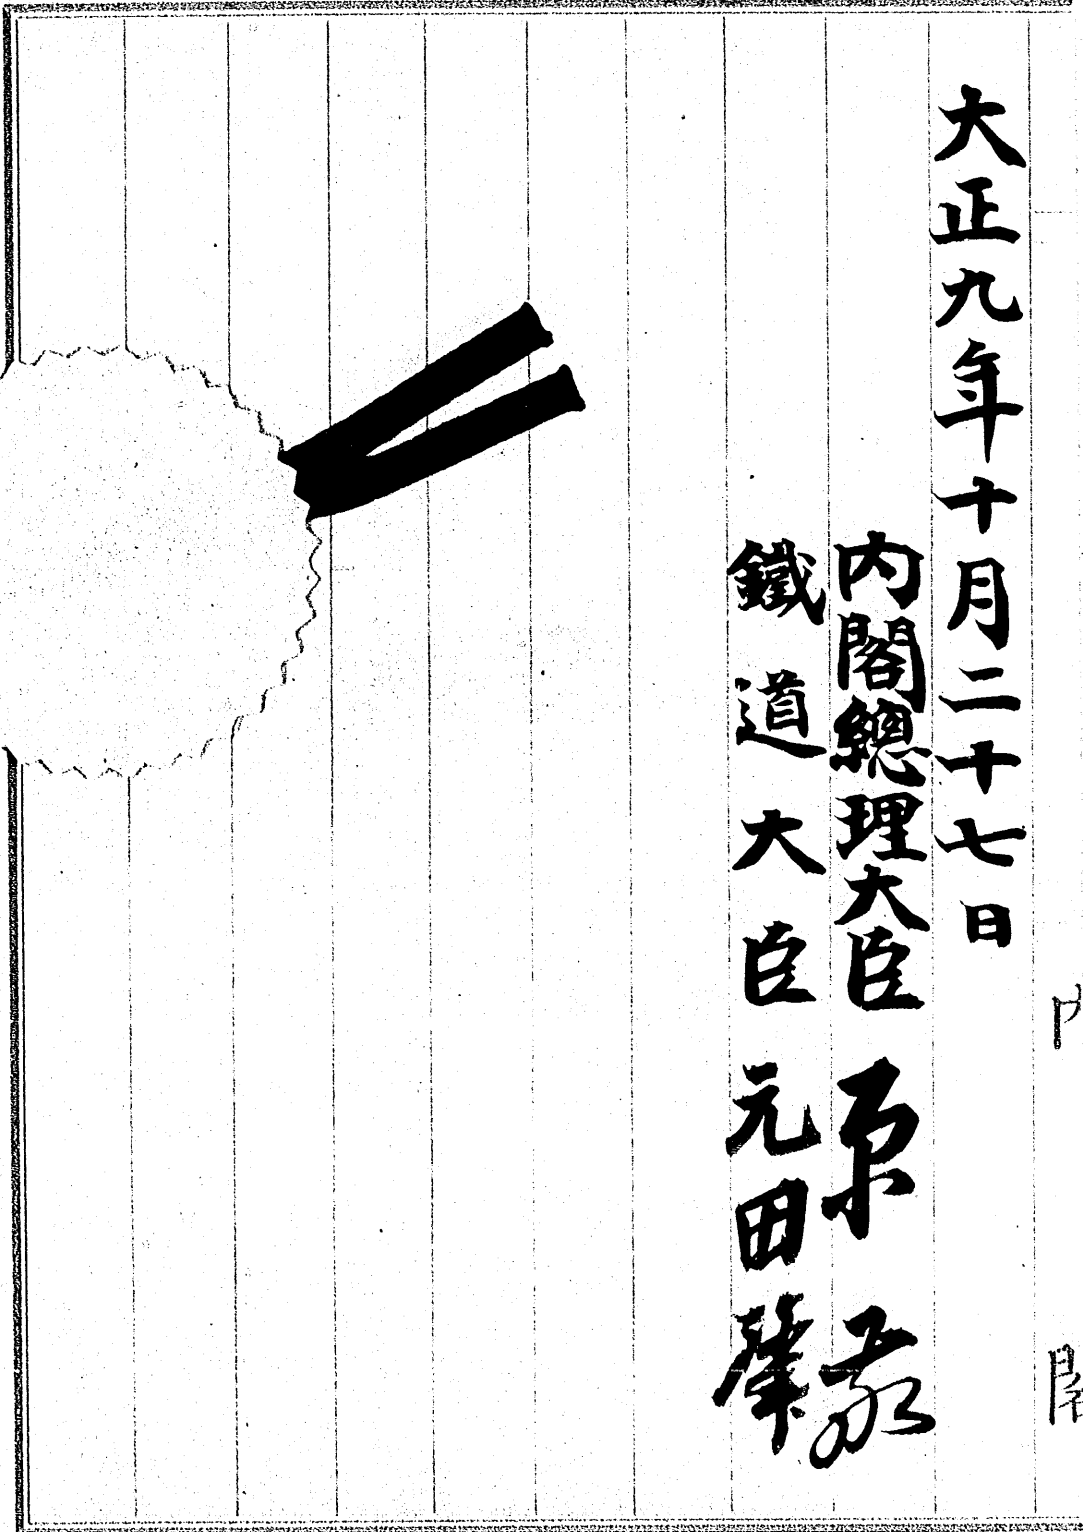 大正九年十月二十七日
內閣總理大臣 原敬
鐵道大臣 元田肇